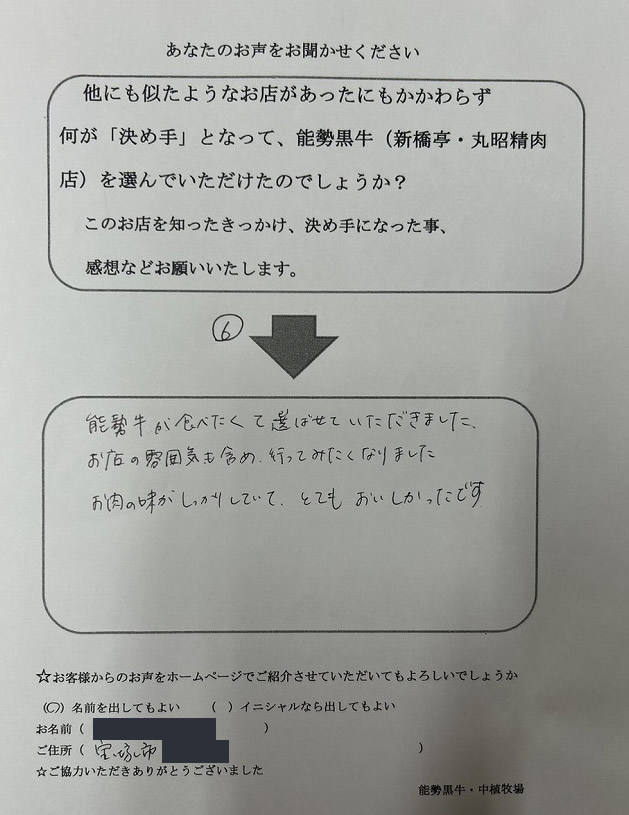 あなたのお声をお聞かせください
他にも似たようなお店があったにもかかわらず
何が「決め手」となって、能勢黒牛（新橋亭・丸昭精肉
店）を選んでいただけたのでしょうか？
このお店を知ったきっかけ、決め手になった事、
感想などお願いいたします。
⑥
能勢牛が食べたくて選ばせていただきました、
お店の雰囲気も含め、行ってみたくなりました
お肉の味がしっかりしていて、とてもおいしかったです
☆お客様からのお声をホームページでご紹介させていただいてもよろしいでしょうか
（○）名前を出してもよい　（　）イニシャルなら出してもよい
お名前（　）
ご住所（宝塚市　）
☆ご協力いただきありがとうございました
能勢黒牛・中植牧場